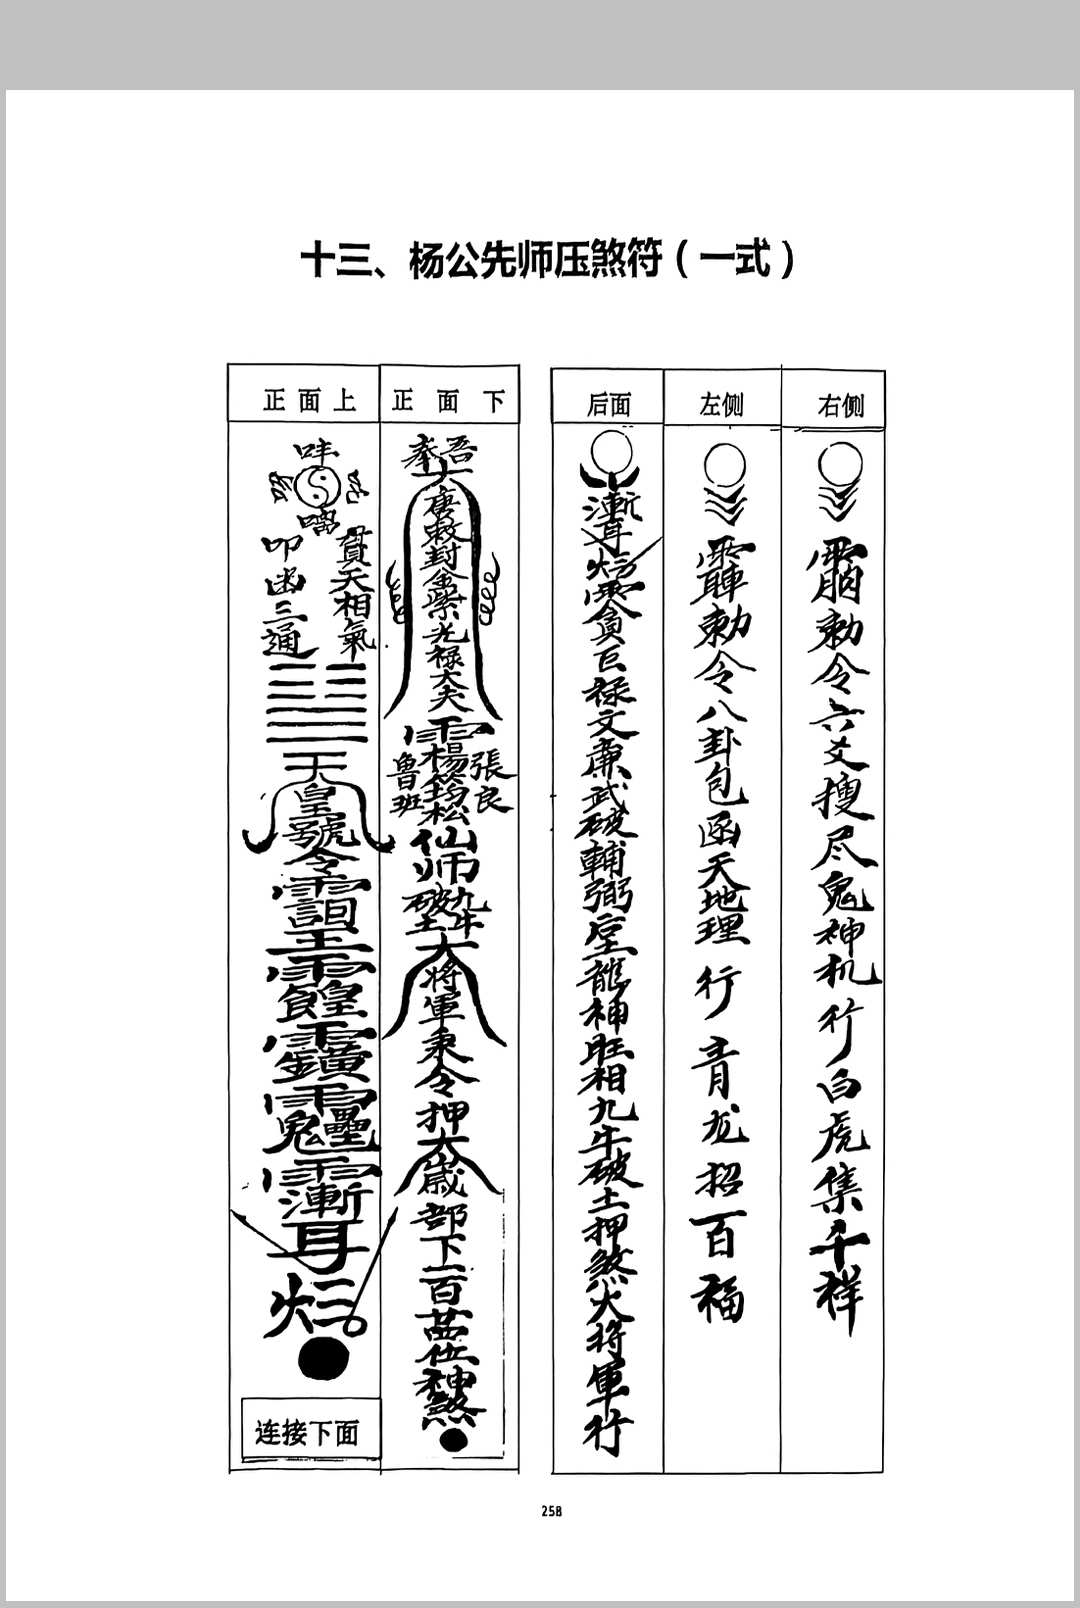 十三、杨公先师压煞符（一式）
正面上
正面下
后面
左侧
右侧
叩函三通
貫天相氣
天皇號令
連接下面
吾奉
唐敕封金紫光禄大夫
楊筠松
魯班
張良
仙师
九牛破土
大将軍秉令押大歲部下百萬位神煞
貪巨禄文廉武破輔弼堂龍神旺相九牛破土押煞大将軍行
勅令八卦包函天地理行青龙招百福
勅令六爻搜尽鬼神机行白虎集千祥
258